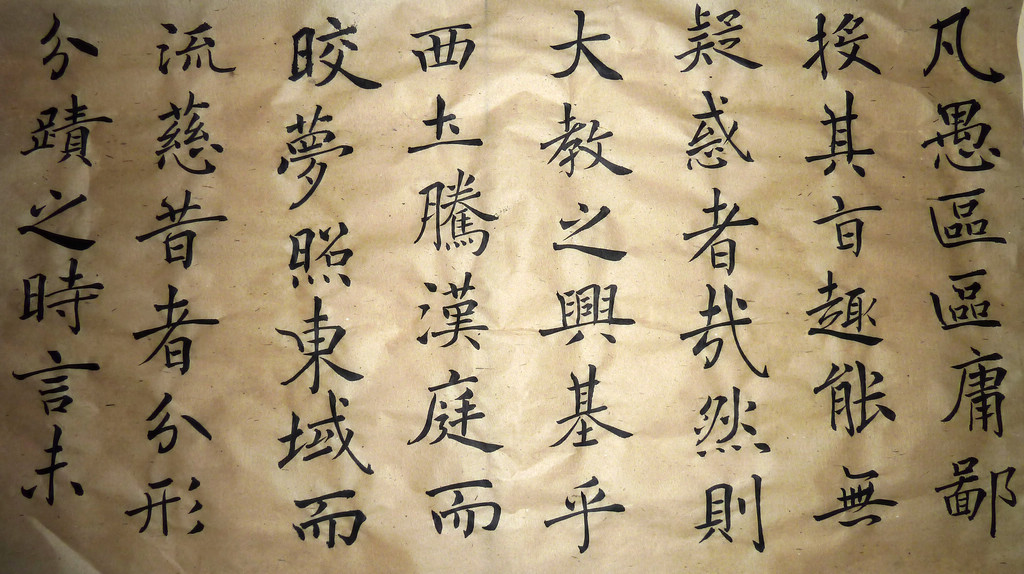 凡愚區區庸鄙
投其旨趣能無
疑惑者哉然則
大教之興基乎
西土騰漢庭而
皎夢照東域而
流慈昔者分形
分蹟之時言未